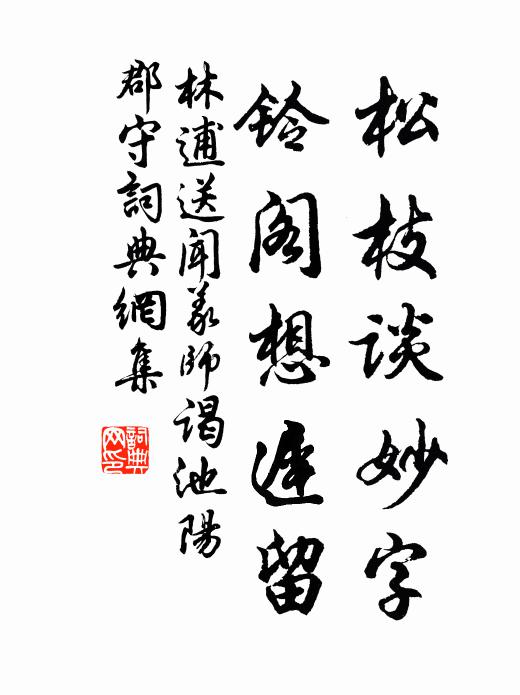 松枝談妙字
鈴閣想遲留
林逋送聞義師謁池陽
郡守詞典網集
詞典
网印